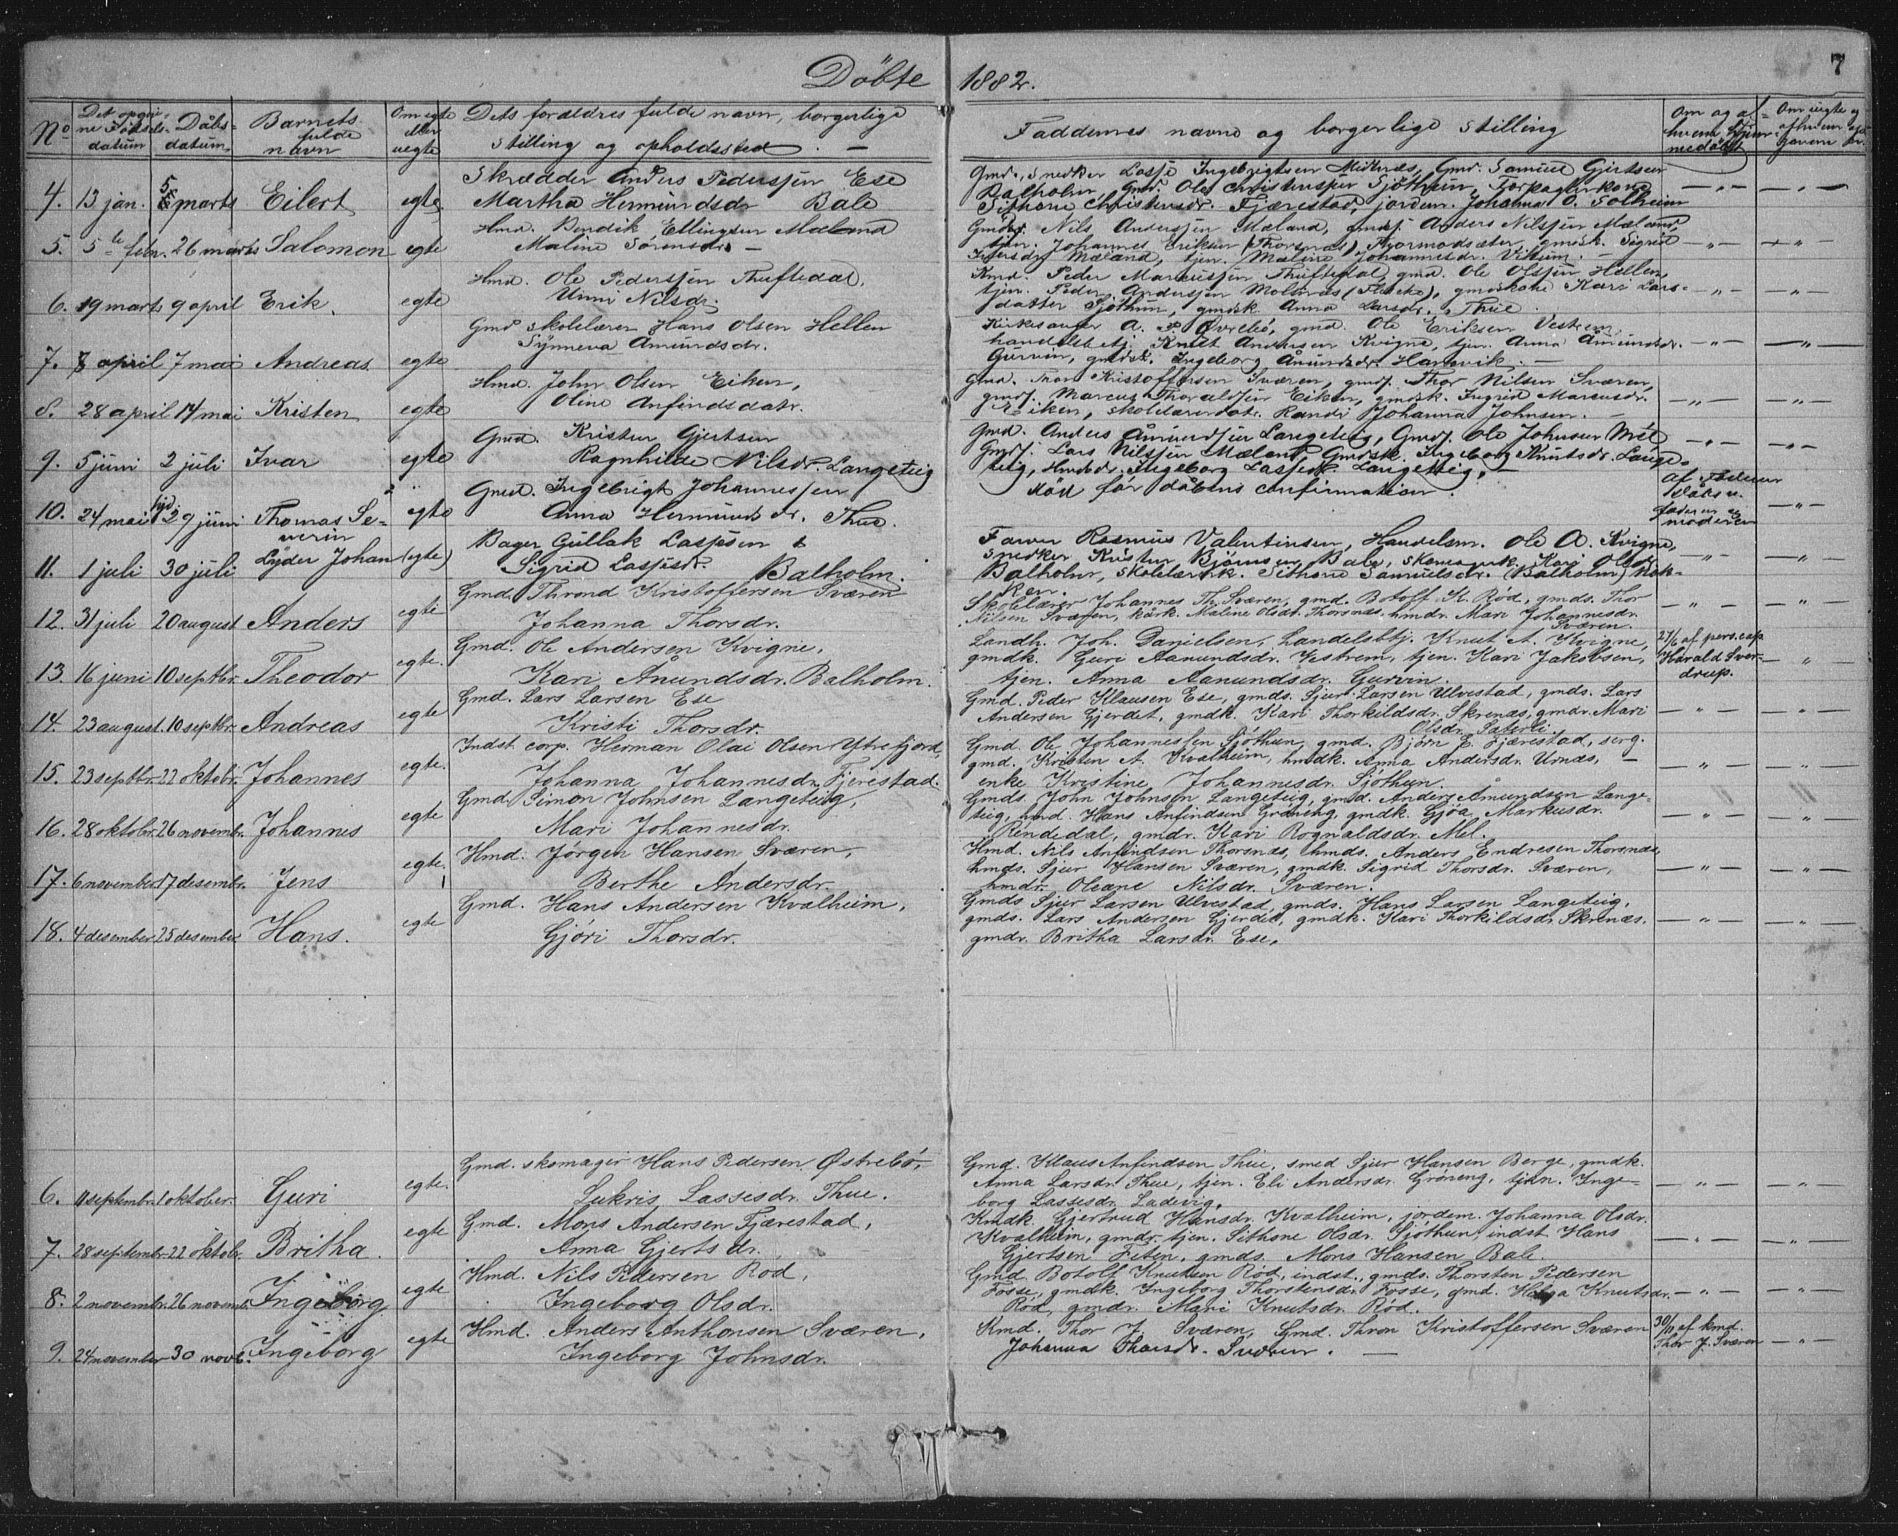 Döbte 1882.
7
No
Det opgivne Födselsdatum
Dåbsdatum
Barnets fulde navn
Om egte eller uegte
Dets forældres fulde navn, borgerlige stilling og opholdssted
Faddernes navne og borgerlige stilling
Om og af hvem hjemmedöbt
4. 13 jan. 5 marts Eilert egte
Skrædder Anders Pedersen Ese
Martha Hermundsdr Bale
Gmd., snedker Lasse Ingebrigtsen Midtnæs, Gmd. Samuel Gjertsen
Balholm, Gmd. Ole Christensen Sjöthun,
Sithone Christensdr. Fjærestad, jordem. Johanna O. Solheim
5. 5te febr. 26 marts Salomon egte
Hmd. Bendik Ellingsen Mæland
Maline Sörensdr. —
Gmds. Nils Andersen Mæland, gmds. Anders Nilsen Mæland,
tjen. Johannes Eriksen (Thorsnæs) Tjormodsæter, gmdsk. Sigrid
Iversdr. Mæland, tjen. Maline Johannesdr. Vetum. —
6. 19 marts 9 april Erik. egte
Hmd. Ole Pedersen Thuftedal,
Unni Nilsdr.
Kmd. Peder Marcussen Thuftedal, gmd. Ole Olsen Hellen,
tjen. Peder Andersen Molsnæs (Flesche), gmdskone Kari Lars-
datter Sjöthun, gmdsk. Anna Larsdr. Thue.
7. 8 april 7 mai Andreas. egte
Gmd skolelærer Hans Olsen Hellen
Synneva Amundsdr.
Kirkesanger A. Øvrebö, gmd. Ole Eriksen Vestrem,
handelsbtj. Knut Andersen Kvigne, tjen. Anna Åmundsdr.
Gurvin, gmdsk. Ingeborg Åmundsdr. Hamvik. —
8. 28 april 14 mai Kristen egte
Hmd. John Olsen Eiken,
Oline Anfindsdatr.
Gmd. Thron Kristoffersen Sværen, gmds. Thor Nilsen Sværen,
gmds. Marcus Thoralfsen Eiken, gmdsk. Ingrid Marcusdr.
Eiken, skolelærerdatr. Randi Johanna Johnsen. —
9. 5 juni 2 juli Ivar egte
Gmd. Kristen Gjertsen
Ragnhilde Nilsdr. Langeteig
Gmd. Anders Åmundsen Langeteig, Gmds. Ole Johnsen Mel
Gmds. Lars Nilssen Mæland, Gmdsk. Ingeborg Knutsdr. Lange-
teig, Hmdsdr. Ingeborg Lassesdr. Langeteig.
10. 24 mai 29 juni Thomas Se-
verin
egte
Gmd. Ingebrigt Johannessen
Anna Hermundsdr. Thue.
död för dåbens confirmation.
af
faderen og
moderen
11. 1 juli 30 juli Lyder Johan (egte)
Bager Gullak Lassesen
Sigrid Lassesdr. Balholm.
Farver Rasmus Valentinsen, Handelsm. Ole A. Kvigne,
Snedker Kristen Björnsen Bale, Kari Olsdr.
Balholm, skolelærk. Sithone Samuelsdr. (Balholm) Nök-
ken.
12. 31 juli 20 august Anders egte
Gmd. Thrond Kristoffersen Sværen
Johanna Thorsdr.
Skolelærer Johannes Th. Sværen, gmd. Botolf K. Röd, gmds. Thor
Nilsen Sværen, kårk. Maline Olsdr. Thorsnæs, hmdr. Mari Johannesdr.
Sværen.
13. 16 juni 10 septbr. Theodor egte.
Gmd. Ole Andersen Kvigne,
Kari Åmundsdr. Balholm.
Landh. Joh. Danielsen, Handelsbtj. Knut A. Kvigne,
gmdk. Guri Aamundsdr. Vestrem, tjen. Kari Jakobsen,
tjen. Anna Aamundsdr. Gurvin.
27/6 af pers. cap.
Harald Sver-
drup.
14. 23 august. 10 septbr. Andreas egte
Gmd. Lars Larsen Ese
Kristi Thorsdr.
Gmd. Peder Klausen Ese, gmds. Sjur Larsen Ulvestad, gmds. Lars
Andersen Gjerdet, gmdk. Kari Thorkildsdr. Skrenæs, gmdr. Mari
Olsdr. Säterli.
15. 23 septbr. 22 oktobr. Johannes egte.
Indst. corp. Herman Olai Olsen Ytrefjord,
Johanna Johannesdr. Fjerestad.
Gmd. Ole Johannessen Sjöthun, gmd. Björn E. Fjærestad, serg.
gmd. Kristen A. Kvalheim, hmdk. Anna Andersdr. Urnæs, —
enke Kristine Johannesdr. Sjöthun.
16. 28 oktobr. 26 novembr. Johannes egte
Gmd. Simon Johnsen Langeteig,
Mari Johannesdr.
Gmds. John Johnsen Langeteig, gmd. Anders Åmundsen Lange-
teig, hmd. Hans Anfindsen Gröning, gmdk. Gjöa Markusdr.
Rendedal, gmdr. Kari Rognaldsdr. Mel.
17. 6 november 17 desembr. Jens egte.
Hmd. Jörgen Hansen Sværen,
Berthe Andersdr.
Hmd. Nils Anfindsen Thorsnæs, hmds. Anders Endresen Thorsnæs,
hmds. Sjur Hansen Sværen, gmdk. Sigrid Thorsdr. Sværen,
hmdr. Oleane Nilsdr. Sværen.
18. 4 desember 25 desember. Hans. egte
Gmd. Hans Andersen Kvalheim,
Gjöri Thorsdr.
Gmds Sjur Larsen Ulvestad, gmds. Hans Larsen Langeteig,
gmds. Lars Andersen Gjerdet, gmdk. Kari Thorkildsdr. Skrenæs.
gmdr. Britha Larsdr. Ese.
6. 11 septembr. 1 oktober. Guri egte.
Gmd. skomager Hans Pedersen Østrebö,
Lukris Lassesdr. Thue.
Gmd. Klaus Anfindsen Thue, smed Sjur Hansen Berge, gmdk.
Anna Larsdr. Thue, tjen. Eli Andersdr. Gröning, tjen. Inge-
borg Lassesdr. Ladevig.
7. 28 septembr. 22 oktobr. Britha. egte
Gmd. Mons Andersen Fjærestad,
Anna Gjertsdr.
Kmdk. Gjertrud Hansdr. Kvalheim, jordem. Johanna Olsdr.
Kvalheim, gmdr. tjen. Sithone Olsdr. Sjöthun, indst. Hans
Gjertsen Feten, gmds. Mons Hansen Bale.
8. 2 novembr. 26 novemb. Ingeborg egte
Hmd. Nils Pedersen Röd,
Ingeborg Olsdr.
Gmd. Botolf Knutsen Röd, indst., gmds. Thorsten Pedersen
Fosse, gmdk. Ingeborg Thorstensdr. Fosse, gmd. Helga Knutsdr.
Röd, gmdr. Mari Knutsdr. Röd.
9. 24 november 30 novb. Ingeborg egte
Hmd. Anders Anthonsen Sværen,
Ingeborg Johnsdr.
Kmd. Thor J. Sværen, Gmd. Thron Kristoffersen Sværen
Johanna Thorsdr. Sværen. —
30/11 af kmd.
Thor J. Sværen